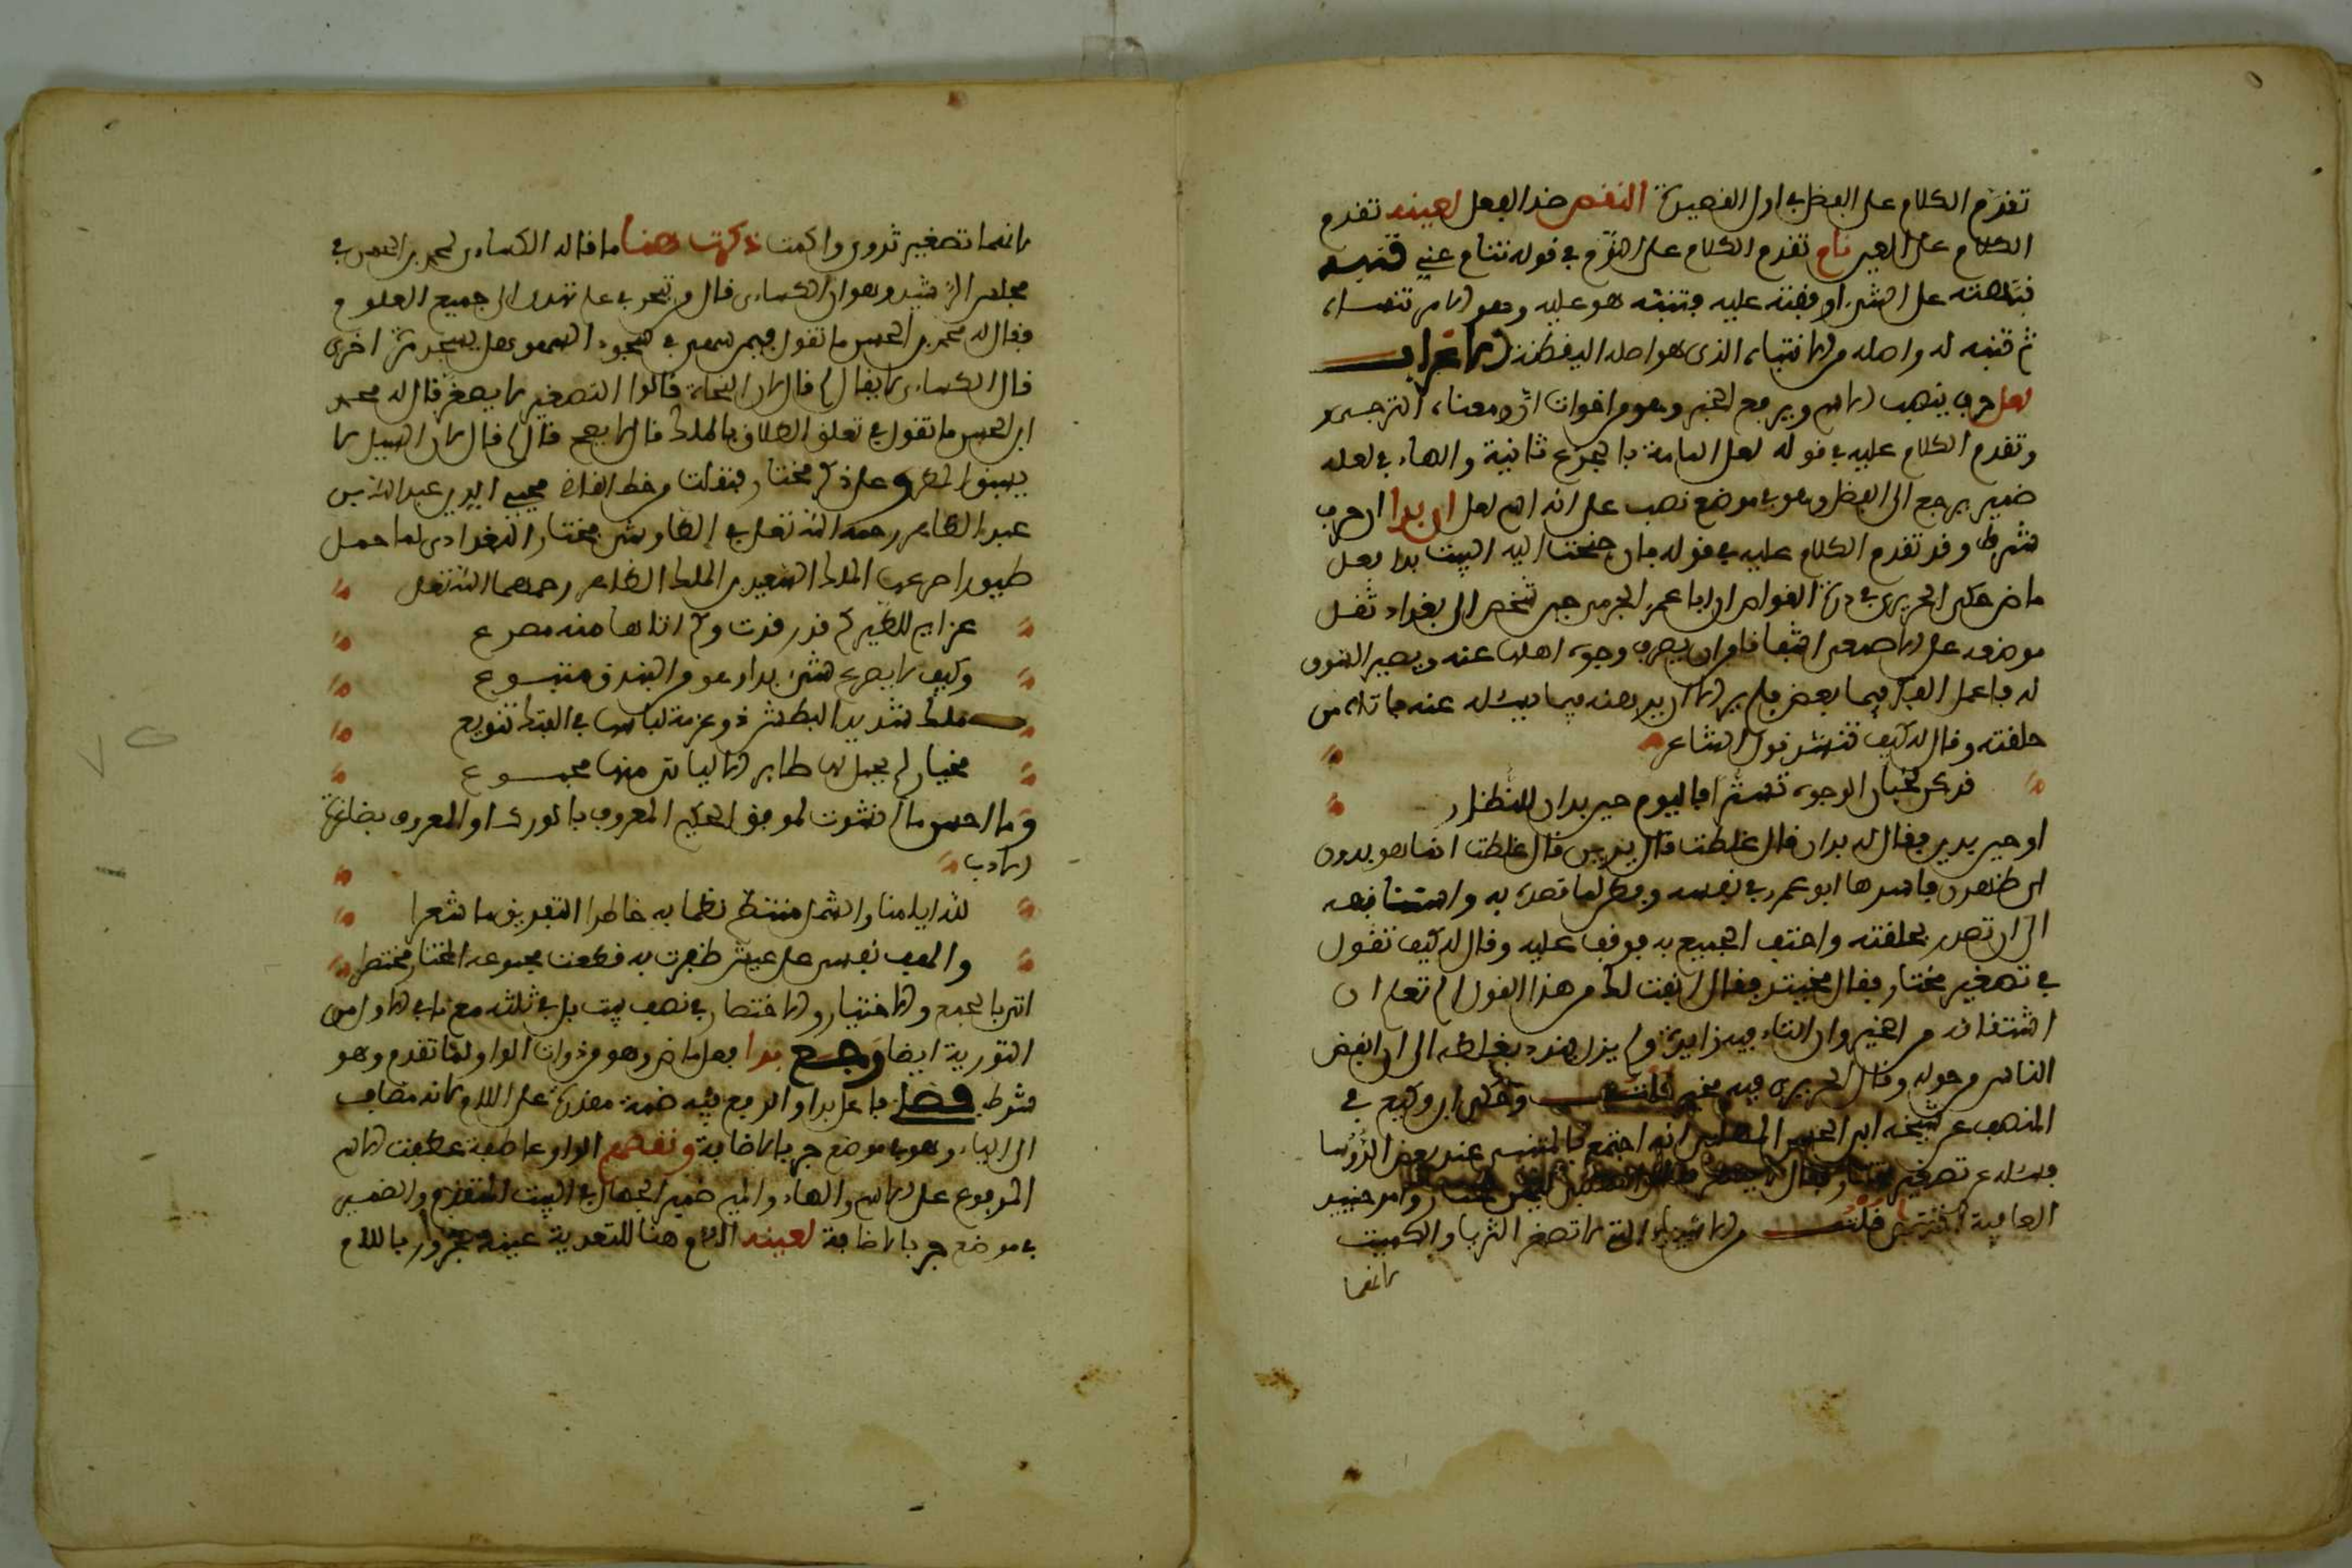 تقدم الكلام على الفضل في اول القصيدة النقص ضد الفضل لعينه تقدم
الكلام على العين نام تقدم الكلام على النوم في قوله تنام عني تنبه
نبهته على الشيء اوقفته عليه فتنبه هو عليه وهو الامر تنبها
ثم تنبه له واصله من الانتباه الذى هو اصله اليقظة الاعراب
لعل حرف ينصب الاسم ويرفع الخبر وهو من اخوات ان ومعناه الترجي
وتقدم الكلام عليه في قوله لعل المامة بالجزع ثانية والهاء في لعله
ضمير يرجع الى الفضل وهو في موضع نصب على انه اسم لعل ان بدا ان حرف
شرط وقد تقدم الكلام عليه في قوله فان جنحت اليه البيت بدا فعل
ماض حكى الحريرى في درة الغواص ان ابا عمر الجرمي حين شخص الى بغداد ثقل
موضعه على الاصمعي اشفاقا من ان يصرف وجوه اهلها عنه ويصير السوق
له فاعمل الفكر فيما يغض منه فلم ير الا ان يرهقه فيما يسئله عنه فاتاه في
حلقته وقال له كيف تنشد قول الشاعر
قد كن يخبأن الوجوه تسترا فاليوم حين بدان للنظار
او حين بدين فقال له بدان قال غلطت قال بدين قال غلطت انما هو بدون
اى ظهرن فاسرها ابو عمر في نفسه وفطن لما قصده به واستانف
الى ان تصدر بحلقته واحتف الجميع به فوقف عليه وقال له كيف تقول
في تصغير مختار فقال مخيتير فقال انفت لك من هذا القول الم تعلم ان
اشتقاقه من الخير وان التاء فيه زايدة ولم يزل يندد بغلطه الى ان انفض
الناس من حوله وقال الحريرى فيه مخير قلت وحكى ابن وكيع في
المنصف عن شيخه ابي الحسن المهلبي انه اجتمع بالمتنبي عند بعض الرؤسا
فسئله عن تصغير مختار فقال
العافية قلت ومن الاشياء التي لا تصغر الثريا والكميت
لانهما
لانهما تصغير ثروى واكمت ذكرت هنا ما قاله الكساءى لمحمد بن الحسن في
مجلس الرشيد وهو ان الكساءى قال من تبحر في علم تهدى الى جميع العلوم
فقال له محمد بن الحسن ما تقول فيمن سهى في سجود السهو هل يسجد مرة اخرى
قال الكساءى لا قال لم قال لان النحاة قالوا التصغير لا يصغر قال له محمد
ابن الحسن ما تقول في تعلق الطلاق بالملك قال لا يصح قال لم قال لان السيل لا
يسبق المطر وعلى ذكر مختار فنقلت من خط القاضى محيي الدين عبد الله بن
عبد الظاهر رحمه الله تعلى في الطاوش مختار البغدادى لما حمل
طيورا صرعها الملك السعيد بن الملك الظاهر رحمهما الله تعلى
عزايم للطير كم قدرت وكم اتاها منه مصرع
وكيف لا يصرع شيء بدا وهو من البندق متبوع
ملك شديد البطش ذو عزمة لباسها في الفتك تنويع
مختار لم يحمل لها طاير الا ليات منها مجموع
وما احسن ما انشدت لموفق الحكيم المعروف بالورك او المعروف بضلنعة
الادب
لله ايامنا والشمل منتظم نظما به خاطر التفريق ما شعرا
والهف نفسى على عيش ظفرت به قطعت مجموعه المختار مختصرا
اتى بالجمع والاختيار والاختصار في نصف بيت بل في ثلثه مع ما في الاول من
التورية ايضا رجع بدا فعل ماض وهو من ذوات الواو لما تقدم وهو
شرط فضل فاعل بدا والرفع فيه ضمة مقدرة على اللام لانه مضاف
الى الياء وهو في موضع جر بالاضافة ونقصهم الواو عاطفة عطفت الاسم
المرفوع على الاسم والهاء والميم ضمير الجهال في البيت المتقدم والضمير
في موضع جر بالاضافة لعينه اللام هنا للتعدية عينه مجرور باللام